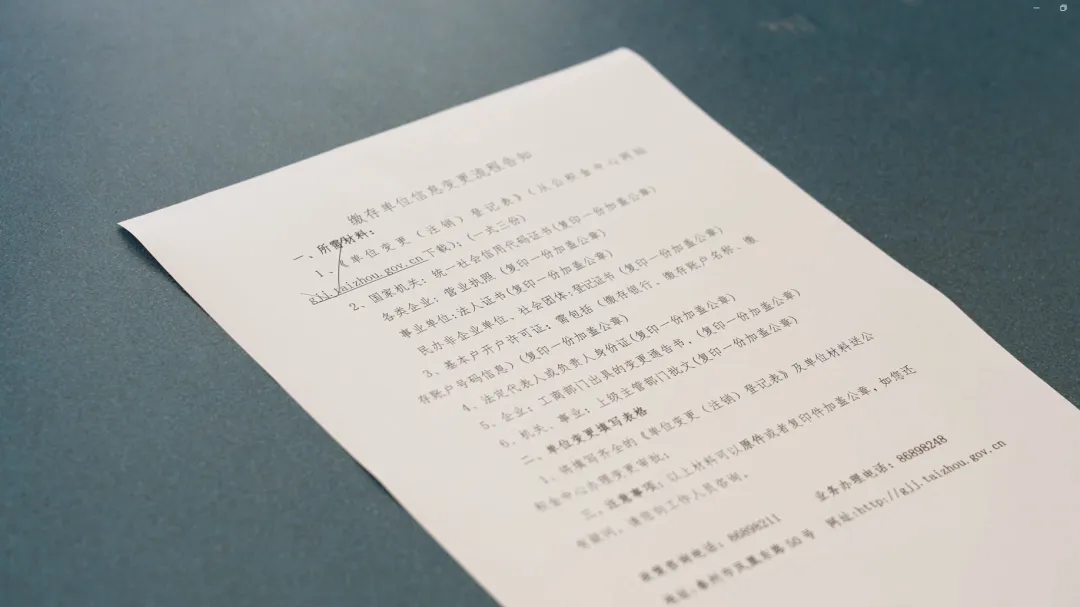 缴存单位信息变更流程告知
一、所需材料：
1、《单位变更（注销）登记表》（从公积金中心网站
gjj.taizhou.gov.cn下载）；（一式三份）
2、国家机关：统一社会信用代码证书(复印一份加盖公章)
各类企业：营业执照（复印一份加盖公章）
事业单位:法人证书(复印一份加盖公章)
民办非企业单位、社会团体:登记证书（复印一份加盖公章）
3、基本户开户许可证：需包括（缴存银行、缴存账户名称、缴
存账户号码信息）(复印一份加盖公章)
4、法定代表人或负责人身份证(复印一份加盖公章)
5、企业：工商部门出具的变更通告书，(复印一份加盖公章)
6、机关、事业：上级主管部门批文(复印一份加盖公章)
二、单位变更填写表格
1、将填写齐全的《单位变更（注销）登记表》及单位材料送公
积金中心办理变更审批；
三、注意事项：以上材料可以原件或者复印件加盖公章，如您还
有疑问，请您向工作人员咨询。
政策咨询电话：86898211 业务办理电话：86898248
地址:泰州市凤凰东路50号 网址:http://gjj.taizhou.gov.cn